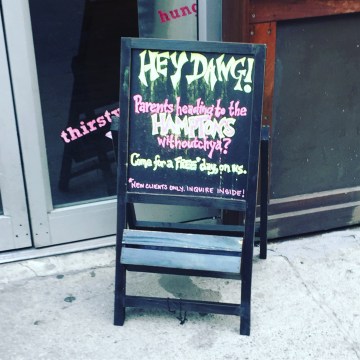 hung
thirsty
HEY DANG!
Parents heading to the
HAMPTONS
withoutchya?
Come for a Free* day, on us.
*NEW CLIENTS ONLY. INQUIRE INSIDE!